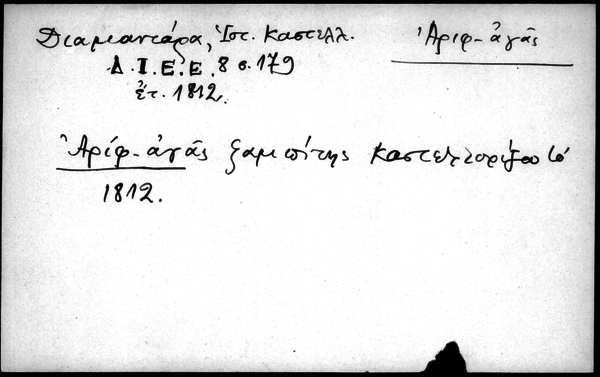 Διαμαντάρα, Ἱστ. Καστελλ.
Ἀρίφ-ἀγᾶς
Δ.Ι.Ε.Ε. 8 σ. 179
ἐτ. 1812.
Ἀρίφ-ἀγᾶς ζαμπίτης Καστελλορίζου τὸ
1812.